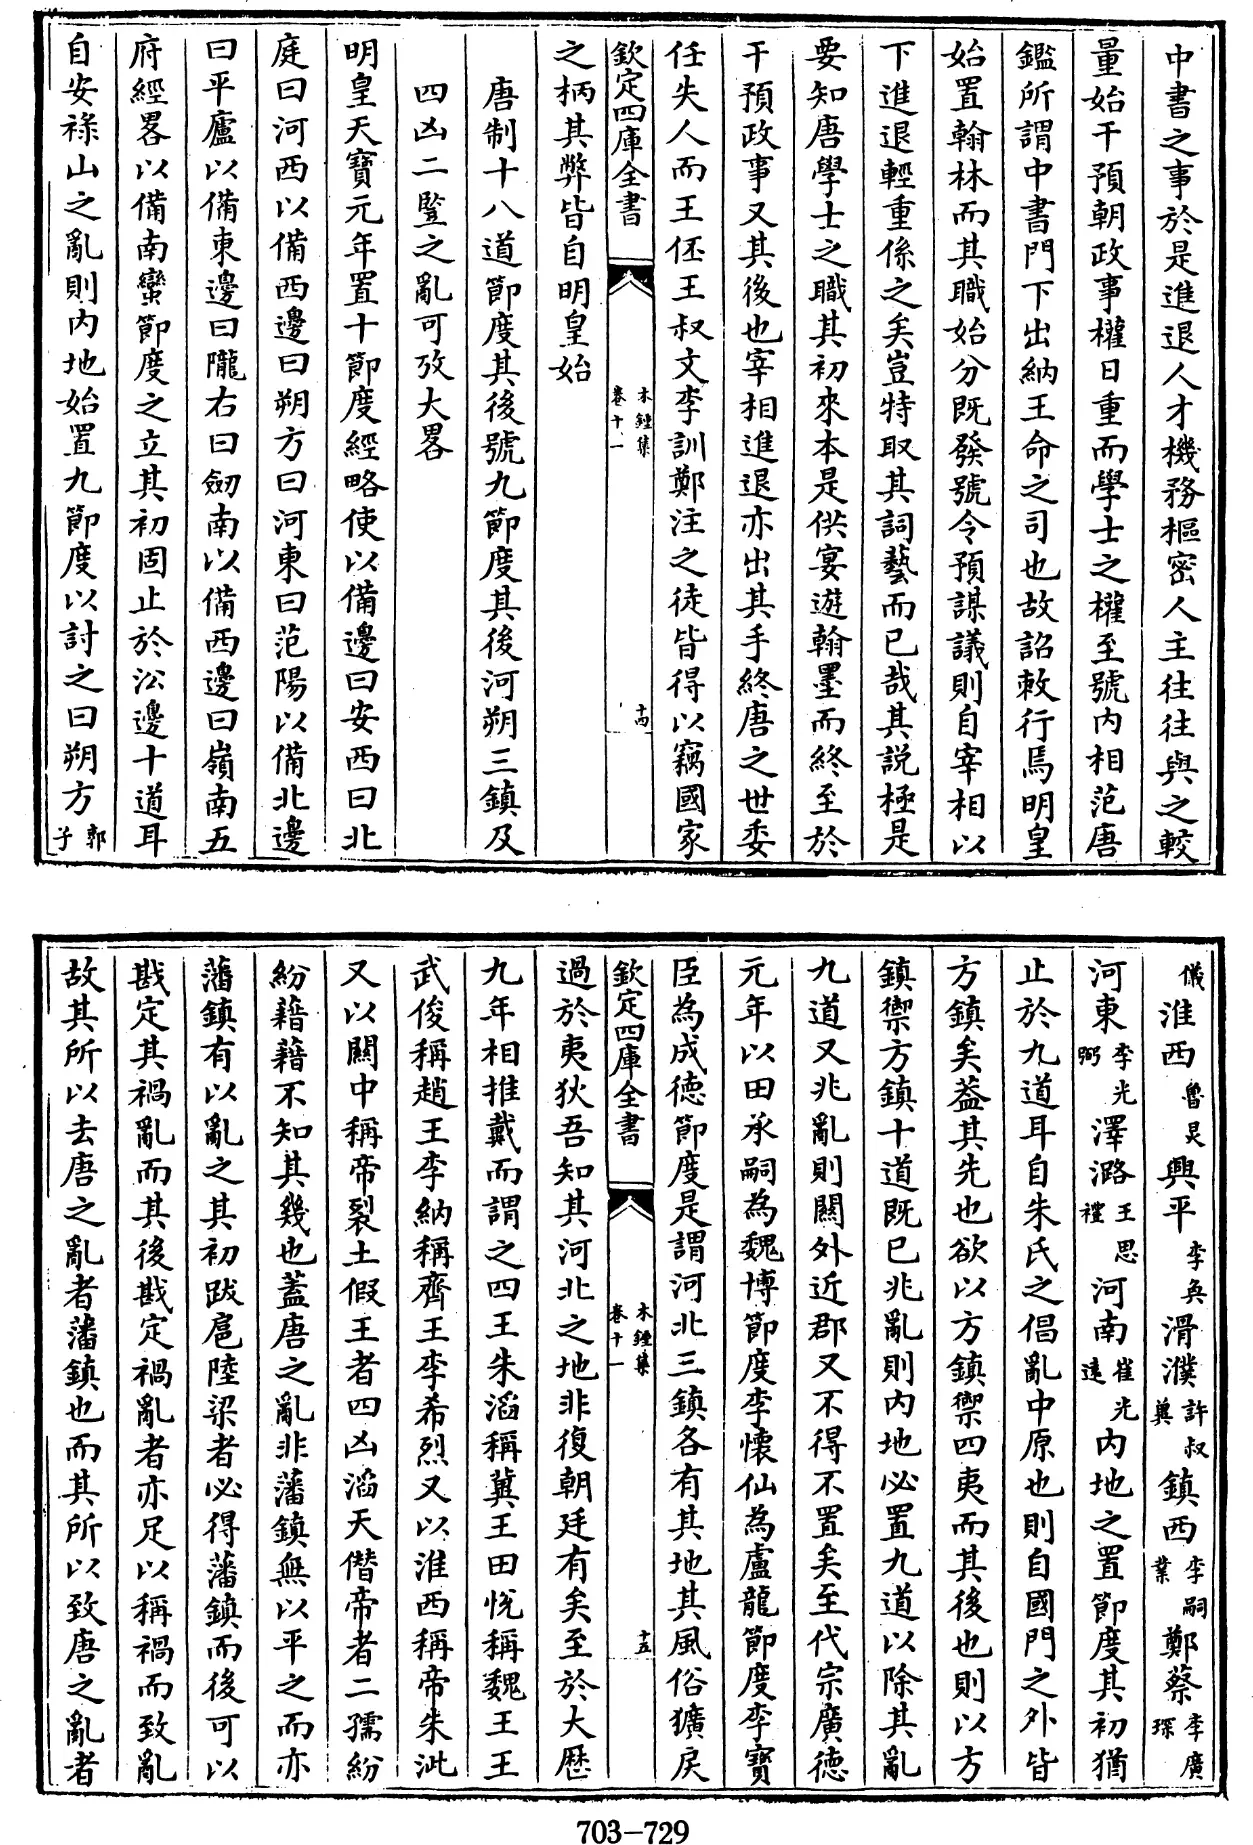 中書之事於是進退人才機務樞密人主往往與之較
量始干預朝政事權日重而學士之權至號内相范唐
鑑所謂中書門下出納王命之司也故詔敕行焉明皇
始置翰林而其職始分既發號令預謀議則自宰相以
下進退輕重係之矣豈特取其詞藝而已哉其説極是
要知唐學士之職其初來本是供宴遊翰墨而終至於
干預政事又其後也宰相進退亦出其手終唐之世委
任失人而王伾王叔文李訓鄭注之徒皆得以竊國家
欽定四庫全書
木鐘集
卷十一
十四
之柄其弊皆自明皇始
唐制十八道節度其後號九節度其後河朔三鎮及
四凶二豎之亂可攷大畧
明皇天寶元年置十節度經略使以備邊曰安西曰北
庭曰河西以備西邊曰朔方曰河東曰范陽以備北邊
曰平盧以備東邊曰隴右曰劒南以備西邊曰嶺南五
府經畧以備南蠻節度之立其初固止於㳂邊十道耳
自安祿山之亂則内地始置九節度以討之曰朔方郭子
儀淮西魯炅興平李奐滑濮許叔兾鎮西李嗣業鄭蔡李廣琛
河東李光弼澤潞王思禮河南崔光遠内地之置節度其初猶
止於九道耳自朱氏之倡亂中原也則自國門之外皆
方鎮矣葢其先也欲以方鎮禦四夷而其後也則以方
鎮禦方鎮十道既已兆亂則内地必置九道以除其亂
九道又兆亂則關外近郡又不得不置矣至代宗廣德
元年以田承嗣為魏博節度李懷仙為盧龍節度李寶
臣為成德節度是謂河北三鎮各有其地其風俗獷戾
欽定四庫全書
木鐘集
卷十一
十五
過於夷狄吾知其河北之地非復朝廷有矣至於大歷
九年相推戴而謂之四王朱滔稱兾王田悅稱魏王王
武俊稱趙王李納稱齊王李希烈又以淮西稱帝朱泚
又以關中稱帝裂土假王者四凶滔天僣帝者二孺紛
紛藉藉不知其幾也蓋唐之亂非藩鎮無以平之而亦
藩鎮有以亂之其初跋扈陸梁者必得藩鎮而後可以
戡定其禍亂而其後戡定禍亂者亦足以稱禍而致亂
故其所以去唐之亂者藩鎮也而其所以致唐之亂者
703-729